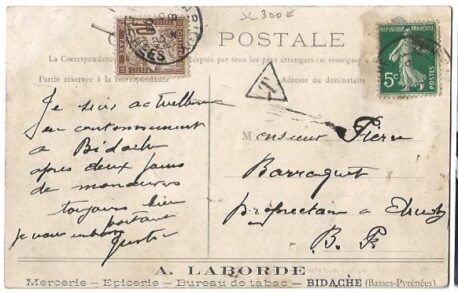 JL 300€
POSTALE
La Correspondance
acceptée par tous les pays étrangers (se renseigner
Partie réservée à la correspondance
Adresse du destinataire
10
REPUBLIQUE FRANÇAISE
5c
POSTES
T
Je suis actuellement
en cantonnement
à Bidache
après deux jours
de manœuvres
toujours bien
portant
je vous embrasse
Monsieur Pierre
Barraquet
propriétaire à
B. P.
A. LABORDE
Mercerie - Epicerie - Bureau de tabac - BIDACHE (Basses-Pyrénées)